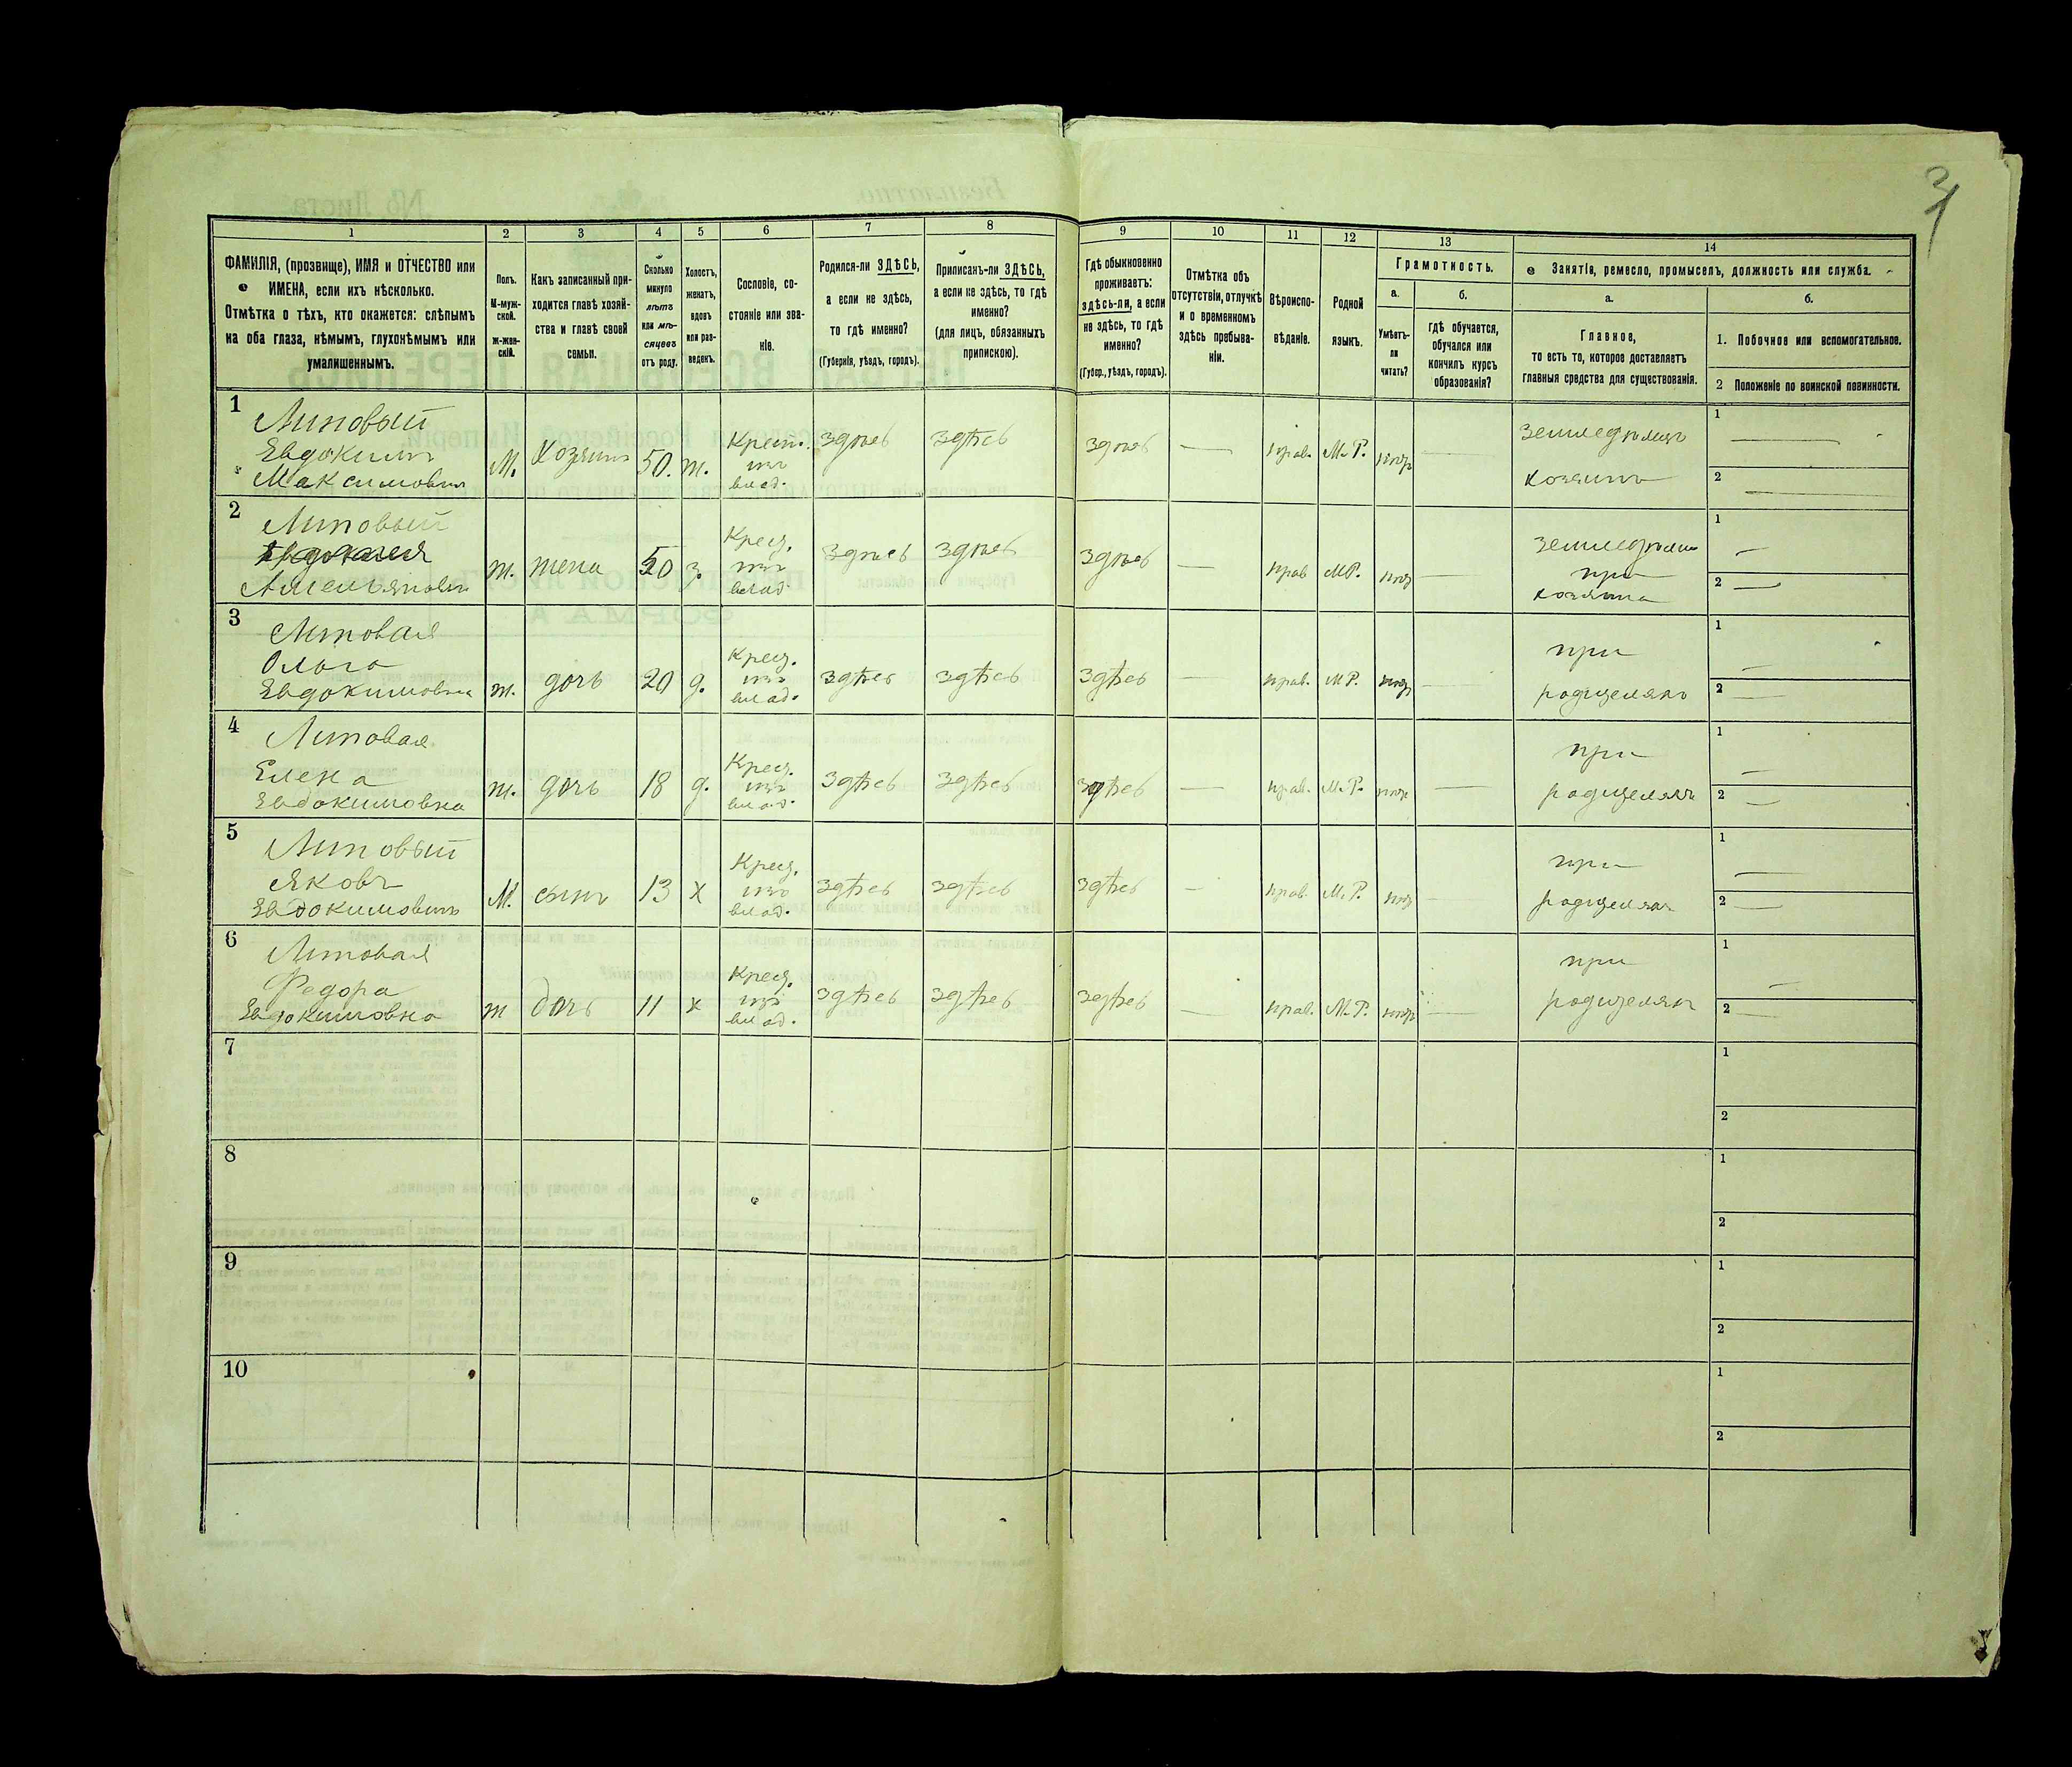 3
1
2
3
4
5
6
7
8
9
10
11
12
13
14
ФАМИЛІЯ, (прозвище), ИМЯ и ОТЧЕСТВО или
ИМЕНА, если ихъ нѣсколько.
Отмѣтка о тѣхъ, кто окажется: слѣпымъ
на оба глаза, нѣмымъ, глухонѣмымъ или
умалишеннымъ.
Полъ.
М-муж-
ской.
ж-жен-
скій.
Какъ записанный при-
ходится главѣ хозяй-
ства и главѣ своей
семьи.
Сколько
минуло
лѣтъ
или мѣ-
сяцевъ
отъ роду.
Холостъ,
женатъ,
вдовъ
или раз-
веденъ.
Сословіе, со-
стояніе или зва-
ніе.
Родился-ли ЗДѢСЬ,
а если не здѣсь,
то гдѣ именно?
(Губернія, уѣздъ, городъ).
Приписанъ-ли ЗДѢСЬ,
а если не здѣсь, то гдѣ
именно?
(для лицъ, обязанныхъ
припискою).
Гдѣ обыкновенно
проживаетъ:
здѣсь-ли, а если
не здѣсь, то гдѣ
именно?
(Губер., уѣздъ, городъ).
Отмѣтка объ
отсутствіи, отлучкѣ
и о временномъ
здѣсь пребыва-
ніи.
Вѣроиспо-
вѣданіе.
Родной
языкъ.
Грамотность.
а.
Умѣетъ-
ли
читать?
б.
гдѣ обучается,
обучался или
кончилъ курсъ
образованія?
Занятіе, ремесло, промыселъ, должность или служба.
а.
Главное,
то есть то, которое доставляетъ
главныя средства для существованія.
б.
1. Побочное или вспомогательное.
2 Положеніе по воинской повинности.
1
Липовый
Евдокимъ
Максимовичъ
М. Хозяинъ 50. ж.
Крест.
изъ
влад.
здѣсь здѣсь здѣсь — прав. М.Р. нѣтъ —
земледѣлецъ
хозяинъ
1 —
2 —
2
Липовый
Амельяновна
ж. жена 50 з.
Крест.
изъ
влад.
здѣсь здѣсь здѣсь — прав М.Р. нѣтъ —
при
хозяина
1 —
2 —
3
Липовая
Ольга
Евдокимовна
ж. дочь 20 д.
Крест.
изъ
влад.
здѣсь здѣсь здѣсь — прав. М.Р. нѣтъ —
при
родителяхъ
1 —
2 —
4
Липовая
Елена
Евдокимовна
ж. дочь 18 д.
Крест.
изъ
влад.
здѣсь здѣсь здѣсь — прав. М.Р. нѣтъ —
при
родителяхъ
1 —
2 —
5
Липовый
Яковъ
Евдокимовичъ
М. сынъ 13 х
Крест.
изъ
влад.
здѣсь здѣсь здѣсь — прав. М.Р. нѣтъ —
при
родителяхъ
1 —
2 —
6
Липовая
Федора
Евдокимовна
ж дочь 11 х
Крест.
изъ
влад.
здѣсь здѣсь здѣсь — прав. М.Р. нѣтъ —
при
родителяхъ
1 —
2 —
7
1
2
8
1
2
9
1
2
10
1
2